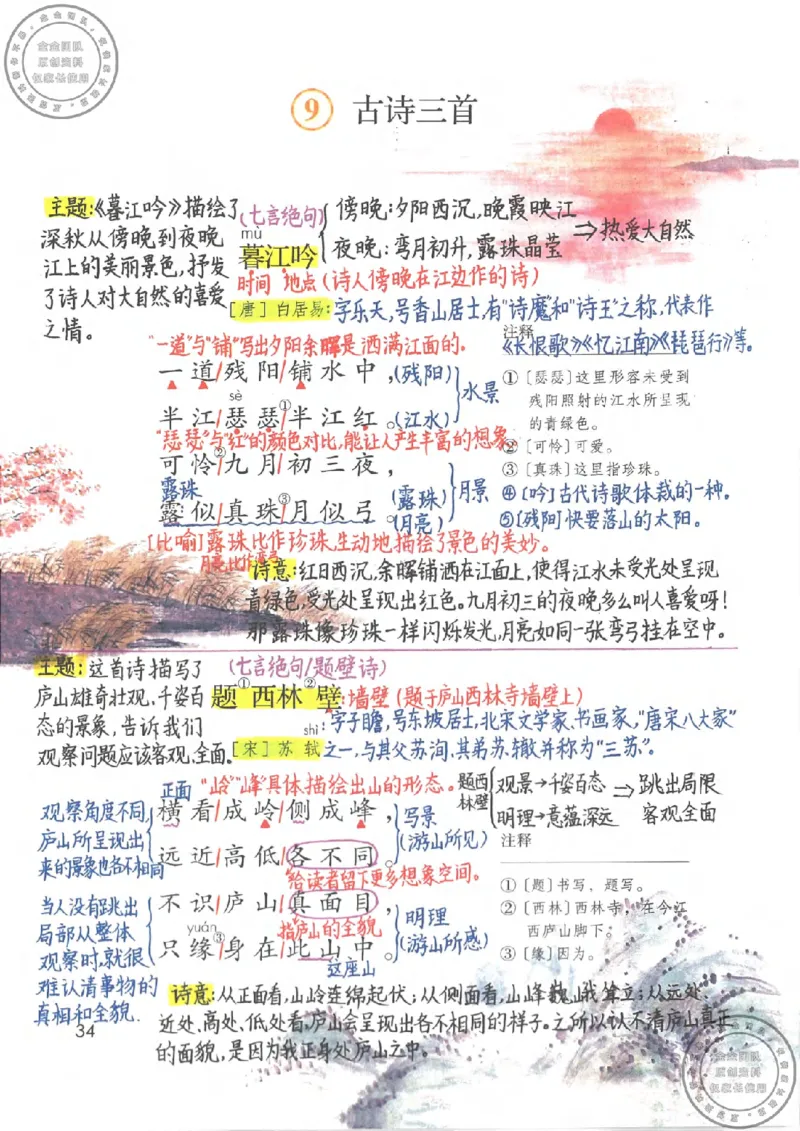 9 古诗三首
主题:《暮江吟》描绘了
深秋从傍晚到夜晚
江上的美丽景色,抒发
了诗人对大自然的喜爱
之情。
(七言绝句)
mù
暮江吟
傍晚:夕阳西沉,晚霞映江
夜晚:弯月初升,露珠晶莹
⇒热爱大自然
时间 地点(诗人傍晚在江边作的诗)
[唐]白居易:字乐天,号香山居士,有“诗魔”和“诗王”之称,代表作
《长恨歌》《忆江南》《琵琶行》等。
“一道”与“铺”写出夕阳余晖是洒满江面的。
一道/残阳/铺水中,(残阳)
sè
半江/瑟瑟①/半江红。(江水)
水景
“瑟瑟”与“红”的颜色对比,能让人产生丰富的想象。
可怜②/九月/初三夜,
露珠
露似/真珠③/月似弓。
(露珠)
(月亮)
月景
[比喻]露珠比作珍珠,生动地描绘了景色的美妙。
月亮比作弯弓
注释
①[瑟瑟]这里形容未受到
残阳照射的江水所呈现
的青绿色。
②[可怜]可爱。
③[真珠]这里指珍珠。
④[吟]古代诗歌体裁的一种。
⑤[残阳]快要落山的太阳。
诗意:红日西沉,余晖铺洒在江面上,使得江水未受光处呈现
青绿色,受光处呈现出红色。九月初三的夜晚多么叫人喜爱呀!
那露珠像珍珠一样闪烁发光,月亮如同一张弯弓挂在空中。
主题:这首诗描写了
庐山雄奇壮观、千姿百
态的景象,告诉我们
观察问题应该客观、全面。
(七言绝句/题壁诗)
题①西林②壁:墙壁(题于庐山西林寺墙壁上)
shì
[宋]苏轼:字子瞻,号东坡居士,北宋文学家、书画家,“唐宋八大家”
之一,与其父苏洵、其弟苏辙并称为“三苏”。
正面 “岭”“峰”具体描绘出山的形态。
横看/成岭/侧成峰,
远近/高低/各不同。
写景
(游山所见)
给读者留下更多想象空间。
不识/庐山/真面目,
指庐山的全貌
yuán
只缘③/身在/此山中。
这座山
明理
(游山所感)
观察角度不同,
庐山所呈现出
来的景象也各不相同
当人没有跳出
局部从整体
观察时,就很
难认清事物的
真相和全貌.
题西林壁
观景→千姿百态
明理→意蕴深远
⇒跳出局限
客观全面
注释
①[题]书写,题写。
②[西林]西林寺,在今江
西庐山脚下。
③[缘]因为。
诗意:从正面看,山岭连绵起伏;从侧面看,山峰巍峨耸立;从远处、
近处、高处、低处看,庐山会呈现出各不相同的样子。之所以认不清庐山真正
的面貌,是因为我正身处庐山之中。
34